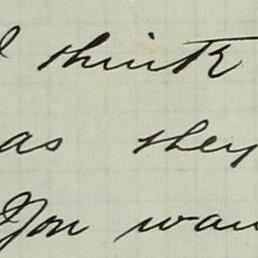 I think
as they
You wan